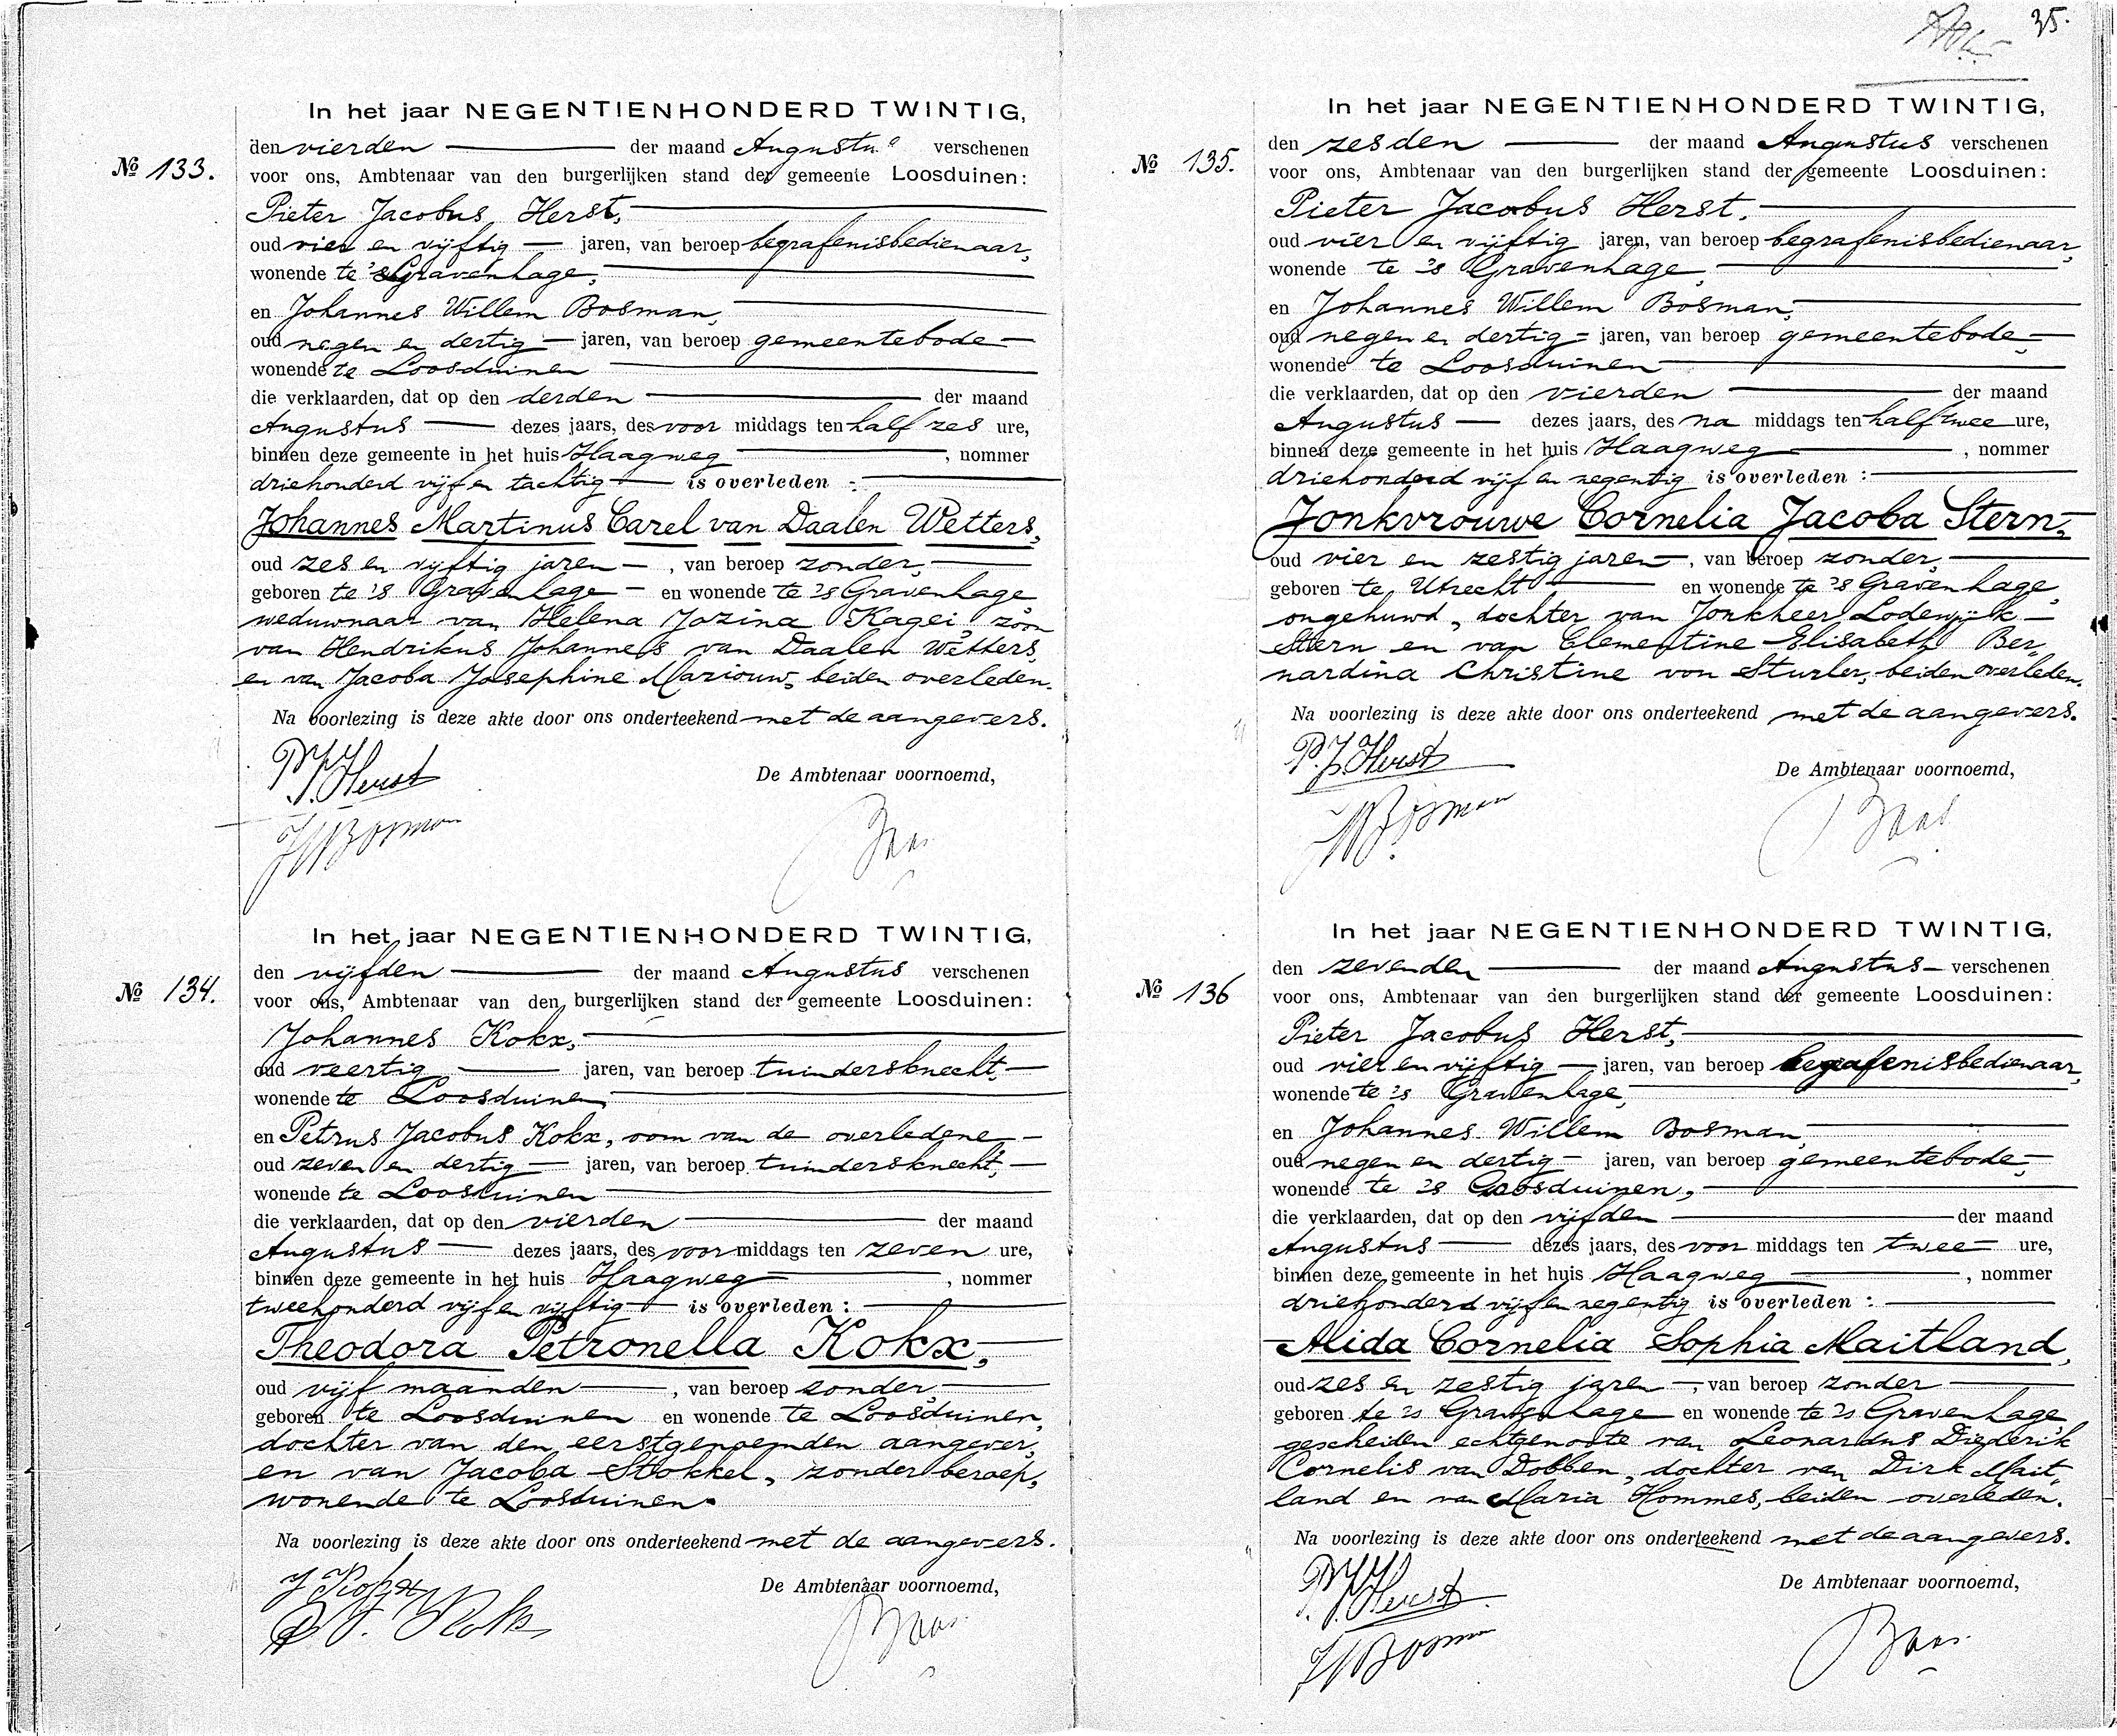 35.
In het jaar NEGENTIENHONDERD TWINTIG,
den vierden der maand Augustus verschenen
№ 133.
voor ons, Ambtenaar van den burgerlijken stand der gemeente Loosduinen:
Pieter Jacobus Herst,
oud vier en vijftig jaren, van beroep begrafenisbedienaar,
wonende te 's Gravenhage,
en Johannes Willem Bosman,
oud negen en dertig jaren, van beroep gemeentebode
wonende te Loosduinen
die verklaarden, dat op den derden der maand
Augustus dezes jaars, des voor middags ten half zes ure,
binnen deze gemeente in het huis Haagweg, nommer
driehonderd vijf en tachtig is overleden :
Johannes Martinus Carel van Daalen Wetters,
oud zes en vijftig jaren, van beroep zonder,
geboren te 's Gravenhage en wonende te 's Gravenhage
weduwnaar van Helena Jozina Kagei, zoon
van Hendrikus Johannes van Daalen Wetters,
en van Jacoba Josephine Mariouw, beiden overleden.
Na voorlezing is deze akte door ons onderteekend met de aangevers.
P.J. Herst
De Ambtenaar voornoemd,
JWBosman
Baas
In het jaar NEGENTIENHONDERD TWINTIG,
den vijfden der maand Augustus verschenen
№ 134.
voor ons, Ambtenaar van den burgerlijken stand der gemeente Loosduinen:
Johannes Kokx,
oud veertig jaren, van beroep tuindersknecht,
wonende te Loosduinen,
en Petrus Jacobus Kokx, oom van de overledene
oud zeven en dertig jaren, van beroep tuindersknecht,
wonende te Loosduinen
die verklaarden, dat op den vierden der maand
Augustus dezes jaars, des voor middags ten zeven ure,
binnen deze gemeente in het huis Haagweg, nommer
tweehonderd vijf en vijftig is overleden :
Theodora Petronella Kokx,
oud vijf maanden, van beroep zonder,
geboren te Loosduinen en wonende te Loosduinen,
dochter van den eerstgenoemden aangever,
en van Jacoba Stokkel, zonder beroep,
wonende te Loosduinen.
Na voorlezing is deze akte door ons onderteekend met de aangevers.
J Kokx
De Ambtenaar voornoemd,
P J. Kokx
Baas
In het jaar NEGENTIENHONDERD TWINTIG,
den zesden der maand Augustus verschenen
№ 135.
voor ons, Ambtenaar van den burgerlijken stand der gemeente Loosduinen:
Pieter Jacobus Herst,
oud vier en vijftig jaren, van beroep begrafenisbedienaar,
wonende te 's Gravenhage
en Johannes Willem Bosman,
oud negen en dertig jaren, van beroep gemeentebode,
wonende te Loosduinen
die verklaarden, dat op den vierden der maand
Augustus dezes jaars, des na middags ten half twee ure,
binnen deze gemeente in het huis Haagweg, nommer
driehonderd vijf en negentig is overleden :
Jonkvrouwe Cornelia Jacoba Stern,
oud vier en zestig jaren, van beroep zonder,
geboren te Utrecht en wonende te 's Gravenhage,
ongehuwd, dochter van Jonkheer Lodewijk
Stern en van Clementine Elisabeth Ber„
nardina Christine von Sturler, beiden overleden.
Na voorlezing is deze akte door ons onderteekend met de aangevers.
P.J. Herst
De Ambtenaar voornoemd,
JWBosman
Baas
In het jaar NEGENTIENHONDERD TWINTIG,
den zevenden der maand Augustus verschenen
№ 136
voor ons, Ambtenaar van den burgerlijken stand der gemeente Loosduinen:
Pieter Jacobus Herst,
oud vier en vijftig jaren, van beroep begrafenisbedienaar,
wonende te 's Gravenhage,
en Johannes Willem Bosman,
oud negen en dertig jaren, van beroep gemeentebode,
wonende te 's Loosduinen,
die verklaarden, dat op den vijfden der maand
Augustus dezes jaars, des voor middags ten twee ure,
binnen deze gemeente in het huis Haagweg, nommer
driehonderd vijf en negentig is overleden :
Alida Cornelia Sophia Maitland,
oud zes en zestig jaren, van beroep zonder
geboren te 's Gravenhage en wonende te 's Gravenhage
gescheiden echtgenoote van Leonardus Diederik
Cornelis van Dobben, dochter van Dirk Mait„
land en van Maria Hommes, beiden overleden.
Na voorlezing is deze akte door ons onderteekend met de aangevers.
P.J. Herst
De Ambtenaar voornoemd,
JWBosman
Baas